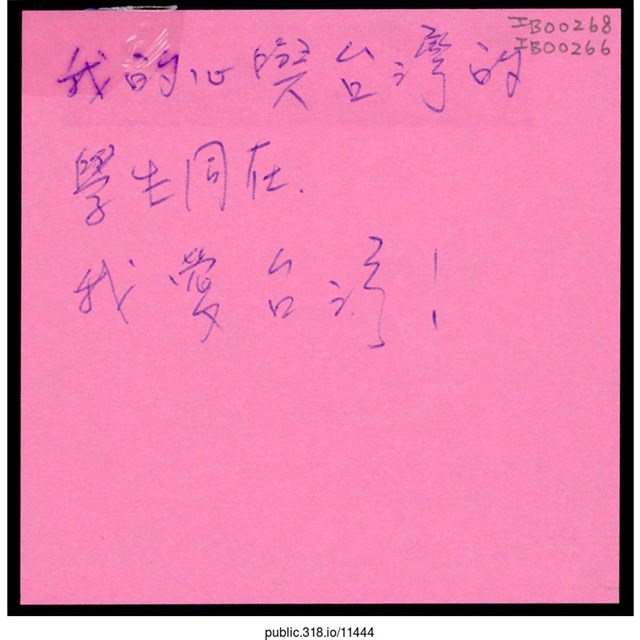 IB00268
IB00266
我的心與台灣的
學生同在.
我愛台湾!
public.318.io/11444